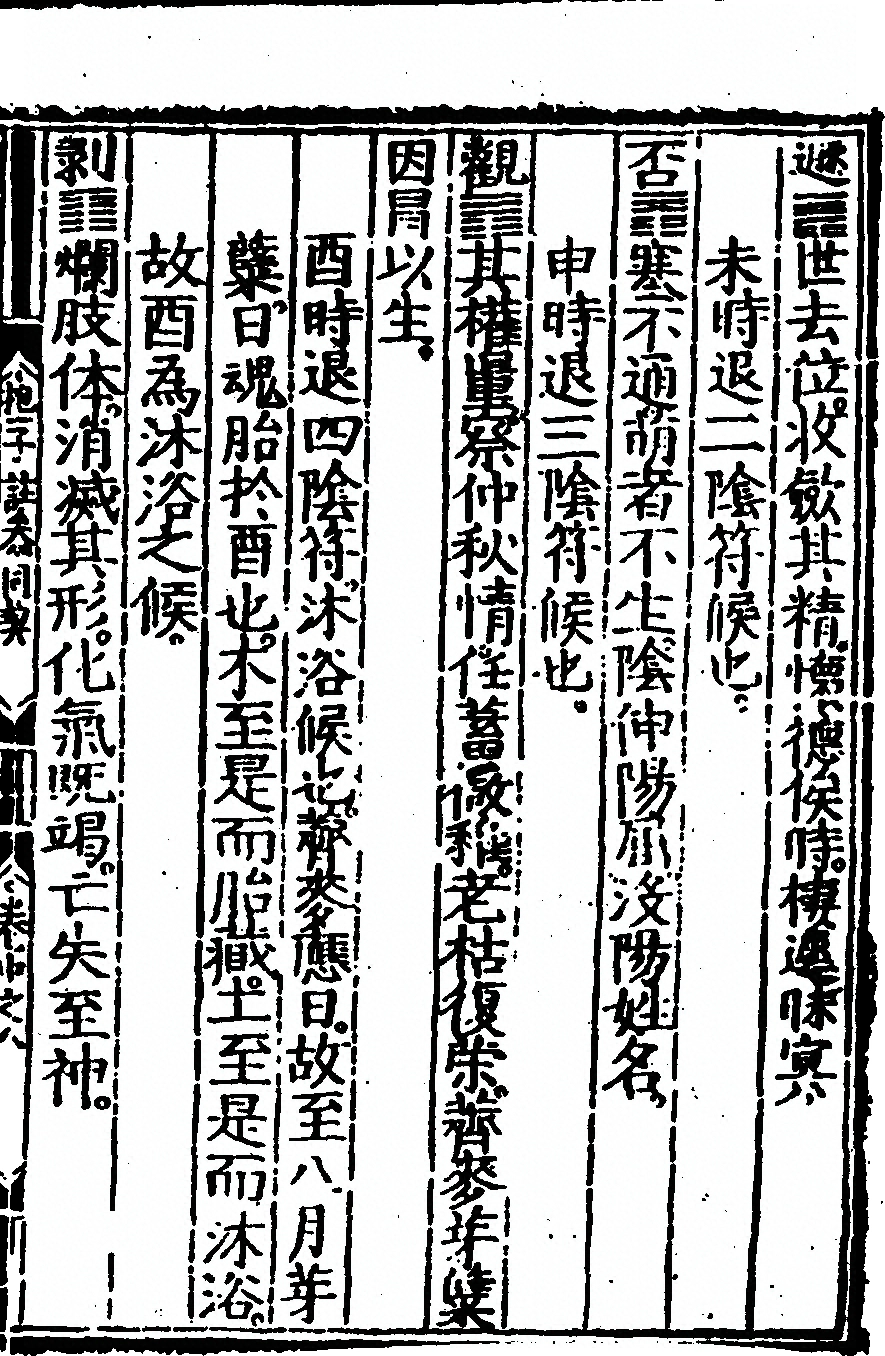 遯䷠世去位。收斂其精。懷德俟時。棲遲昧冥
未時退二陰符候也。
否䷋塞不通萌者不生。陰伸陽屈没陽姓名。
申時退三陰符候也。
觀䷓其權量。察仲秋情任蓄微稚。老枯復榮。薺麥芽蘖
因冐以生。
酉時退四陰符。沐浴候也。薺麥應日。故至八月芽
蘖。日魂胎於酉也。木至是而胎臓。土至是而沐浴。
故酉為沐浴之候。
剥䷖爛肢体。消滅其形。化氣既竭。亡失至神。
抱一子註参同契